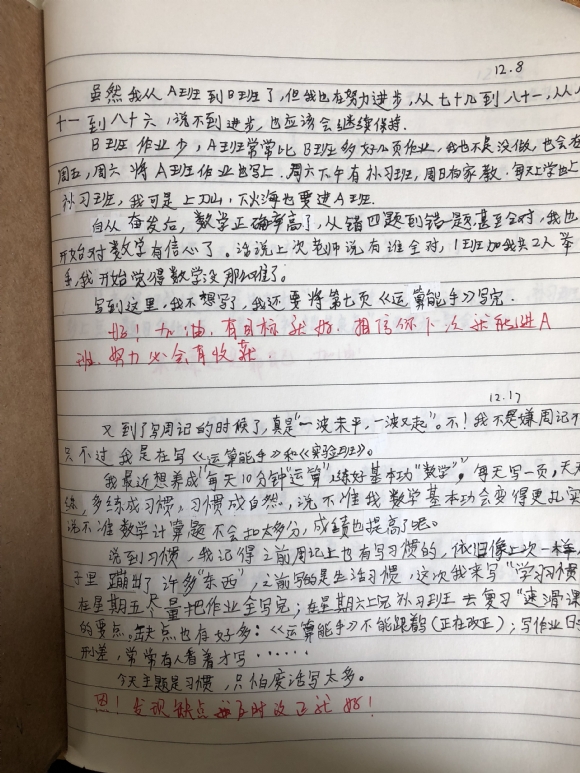 12.8
虽然我从A班到B班了,但我也在努力进步,从七十几到八十一,从八
十一到八十六,说不到进步,也应该会继续保持.
B班作业少,A班常常比B班多好几页作业,我也不是没做,也会在
周五,周六将A班作业也写上.周六下午有补习班,周日有家教.每天上学也上
补习班,我可是上刀山,下火海也要进A班.
自从奋发后,数学正确率高了,从错四题到错一题,甚至全对,我也
开始对数学有信心了。话说上次老师说有谁全对,1班加我共2人举
手,我开始觉得数学没那么难了。
写到这里,我不想写了,我还要将第七页《运算能手》写完.
好!加油,有目标就好,相信你下一次就能进A
班.努力必会有收获.
12.17
又到了写周记的时候了,真是"一波未平,一波又走"。不!我不是嫌周记不
只不过我是在写《运算能手》和《实验班》。
我最近想养成"每天10分钟"运算",练好基本功"数学",每天写一页,天天
练,多练成习惯,习惯成自然。说不准我数学基本功会变得更扎实
说不准数学计算题不会扣太多分,成绩也提高了呢。
说到习惯,我记得之前周记上也有写习惯的,依旧像上次一样,
子里蹦出了许多"东西",之前写的是生活习惯,这次我来写"学习习惯
在星期五尽量把作业全写完;在星期六上完补习班去复习"速滑课
的要点.缺点也有好多:《运算能手》不能跟着(正在改正);写作业日
刑差,常常有人看着才写……
今天主题是习惯,只怕废话写太多。
恩!发现缺点并及时改正就好!